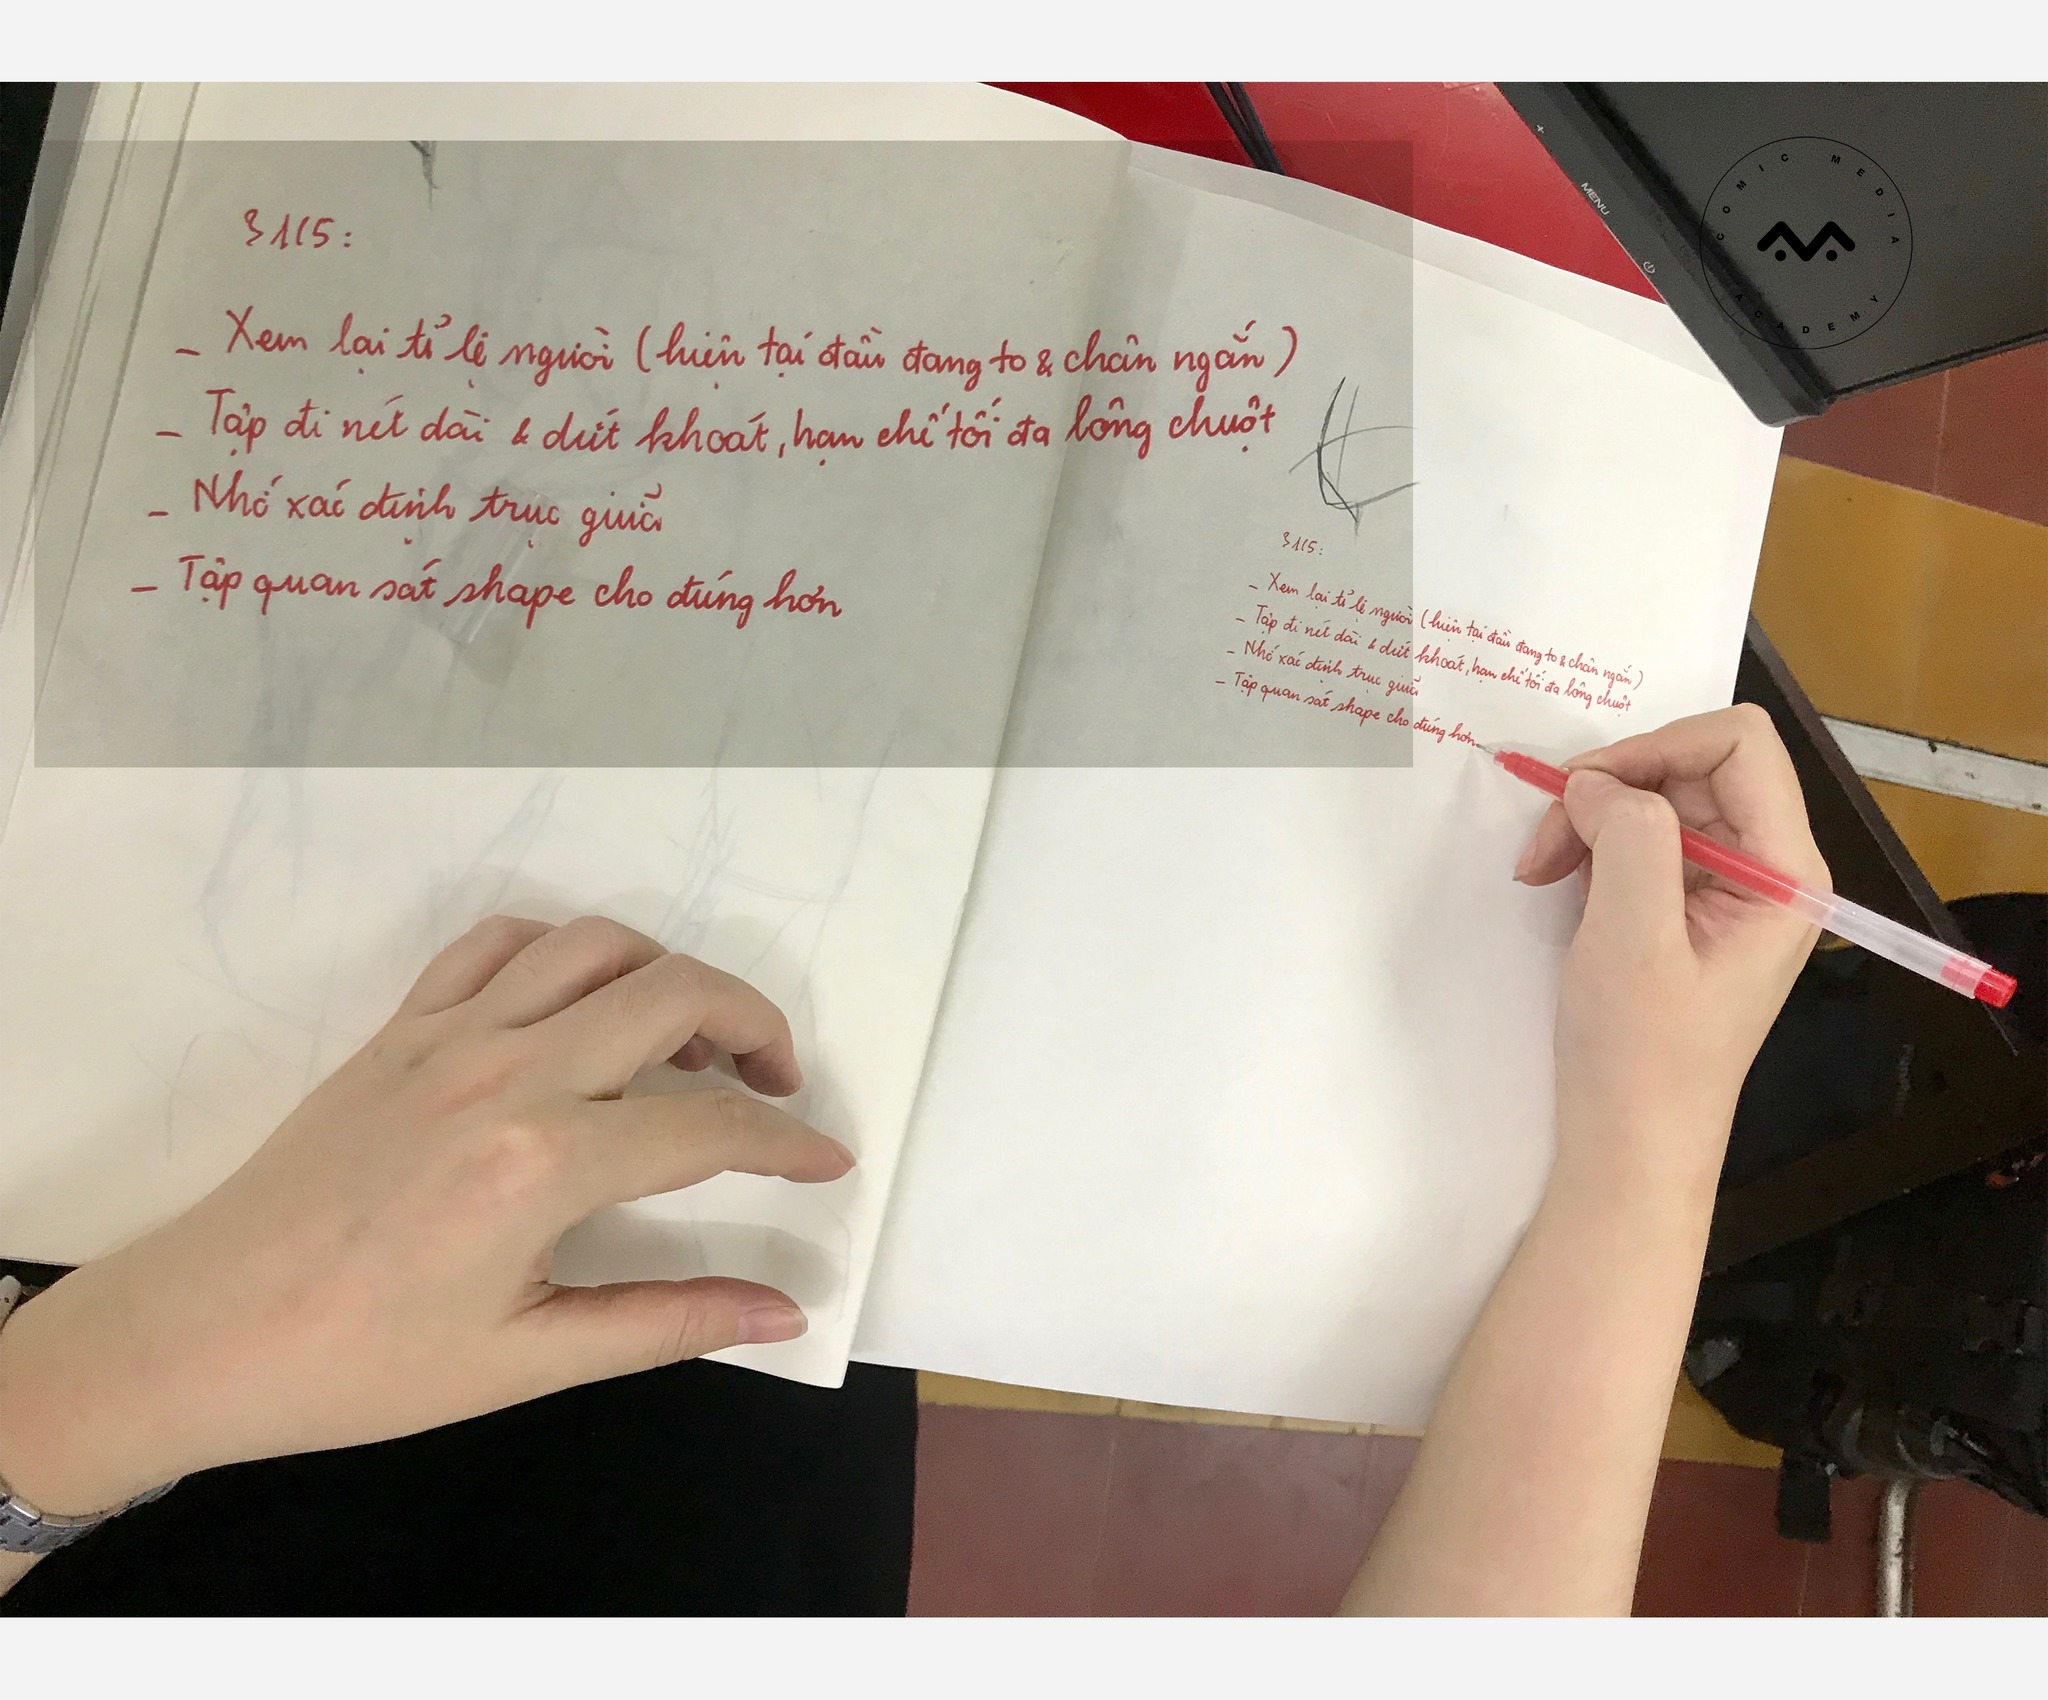 31/5:
- Xem lại tỉ lệ người (hiện tại đầu đang to & chân ngắn)
- Tập đi nét dài & dứt khoát, hạn chế tối đa lông chuột
- Nhớ xác định trục giữa
- Tập quan sát shape cho đúng hơn
31/5:
- Xem lại tỉ lệ người (hiện tại đầu đang to & chân ngắn)
- Tập đi nét dài & dứt khoát, hạn chế tối đa lông chuột
- Nhớ xác định trục giữa
- Tập quan sát shape cho đúng hơn
+
MENU
COMIC MEDIA ACADEMY